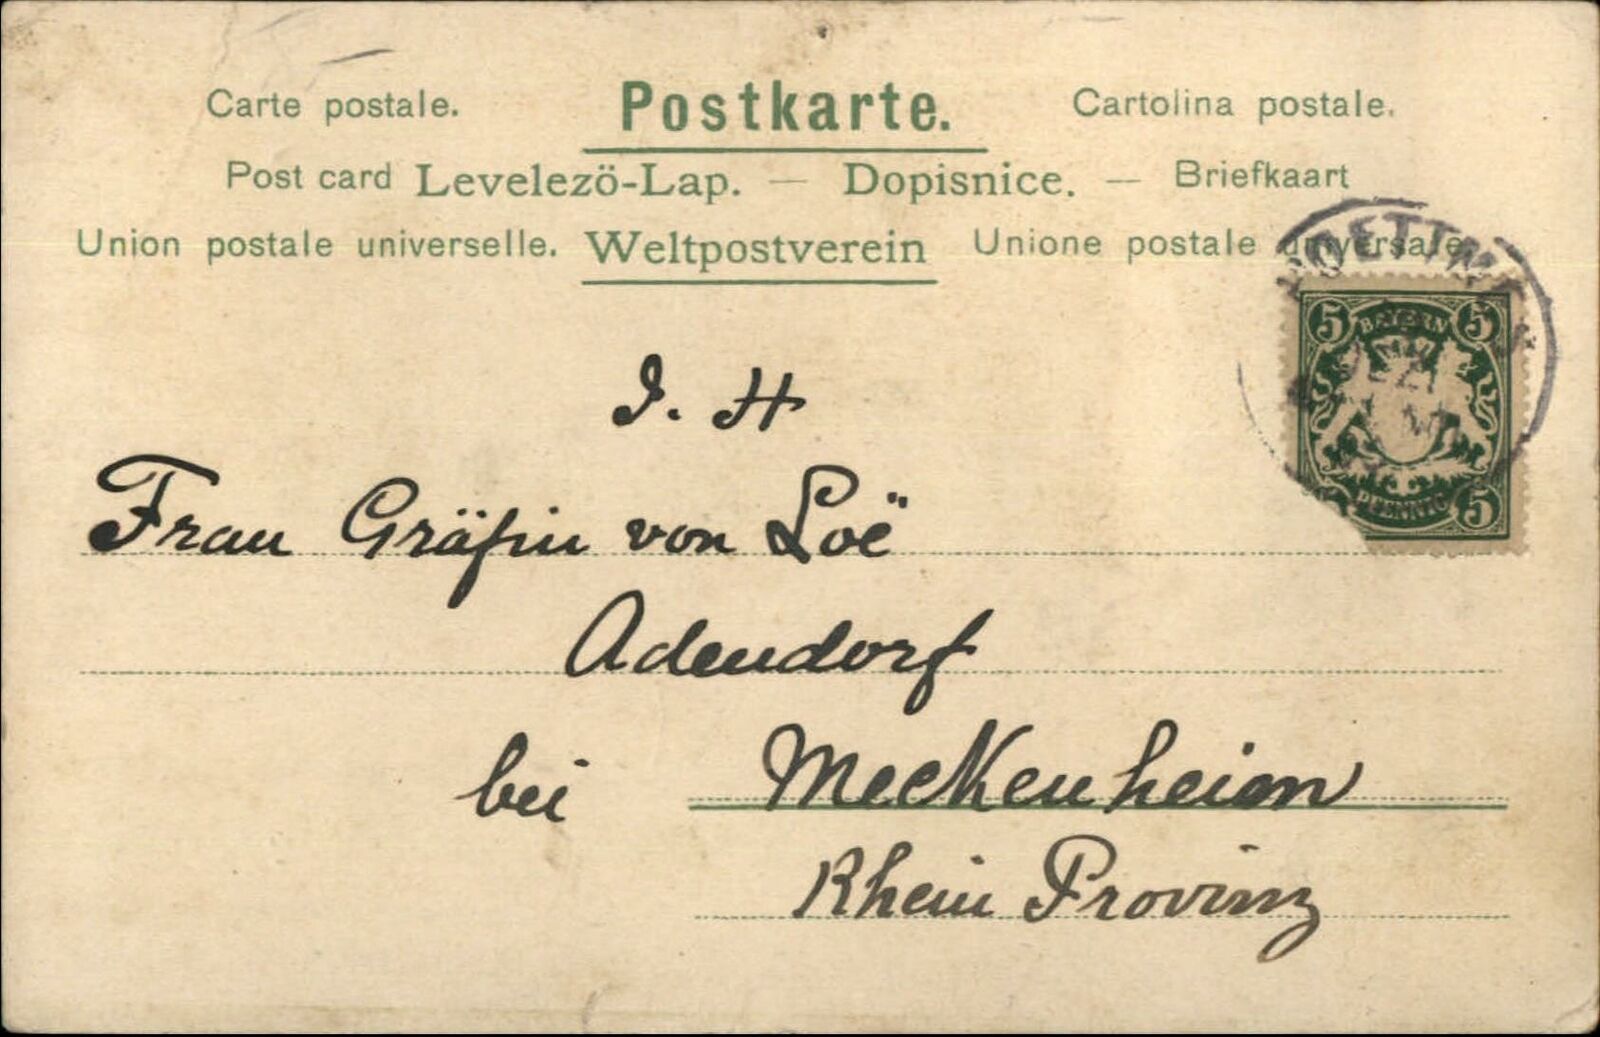 Carte postale. Postkarte. Cartolina postale.
Post card Levelezö-Lap. — Dopisnice. — Briefkaart
Union postale universelle. Weltpostverein Unione postale universale.
5 BAYERN 5
PFENNIG 5
J. H
Frau Gräfin von Loë
Adendorf
bei Meckenheim
Rhein Provinz